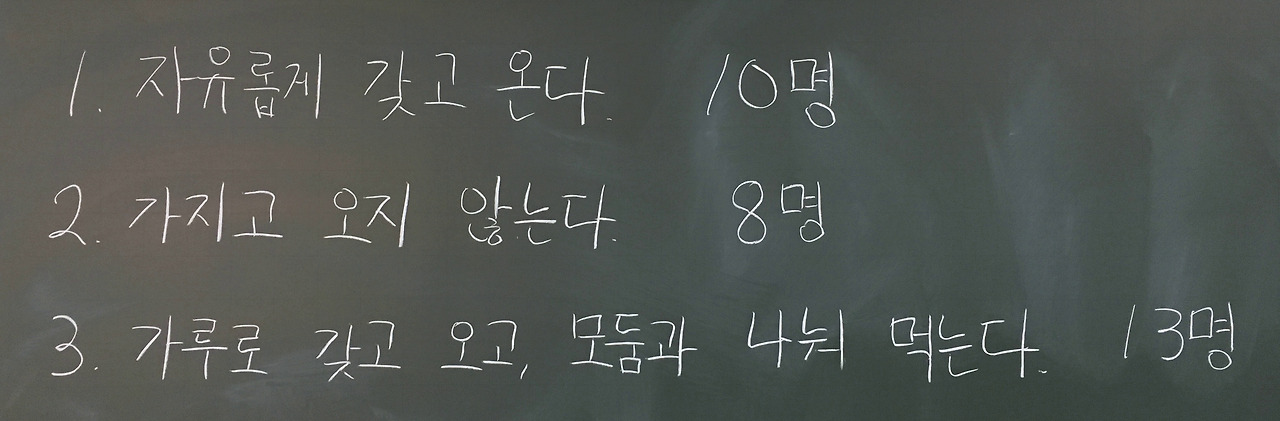 1. 자유롭게 갖고 온다. 10명
2. 가지고 오지 않는다. 8명
3. 가루로 갖고 오고, 모둠과 나눠 먹는다. 13명